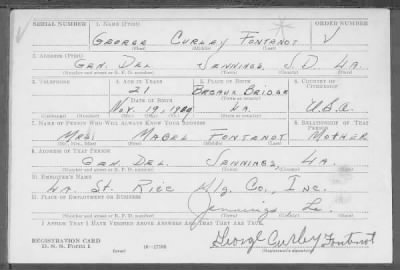 SERIAL NUMBER 1. NAME (Print) ORDER NUMBER
GEORGE CURLEY FONTENOT V
(First) (Middle) (Last)
2. ADDRESS (Print)
GEN. DEL JENNINGS J.D. LA.
(Number and street or R. F. D. number) (Town) (County) (State)
3. TELEPHONE 4. AGE IN YEARS 5. PLACE OF BIRTH 6. COUNTRY OF CITIZENSHIP
21 BREAUX BRIDGE
DATE OF BIRTH (Town or county)
NOV. 19, LA. U.S.A.
(Exchange) (Number) (Mo.) (Day) (Yr.) (State or country)
7. NAME OF PERSON WHO WILL ALWAYS KNOW YOUR ADDRESS 8. RELATIONSHIP OF THAT PERSON
MRS. MABEL FONTENOT MOTHER
(Mr., Mrs., Miss) (First) (Middle) (Last)
9. ADDRESS OF THAT PERSON
GEN. DEL. JENNINGS, LA.
(Number and street or R. F. D. number) (Town) (County) (State)
10. EMPLOYER'S NAME
LA. ST. RICE Mlg. Co., INC.
11. PLACE OF EMPLOYMENT OR BUSINESS
Jennings La.
(Number and street or R. F. D. number) (Town) (County) (State)
I AFFIRM THAT I HAVE VERIFIED ABOVE ANSWERS AND THAT THEY ARE TRUE.
REGISTRATION CARD
D. S. S. Form 1 16—17105 George Curley Fontenot
(over) (Registrant's signature)